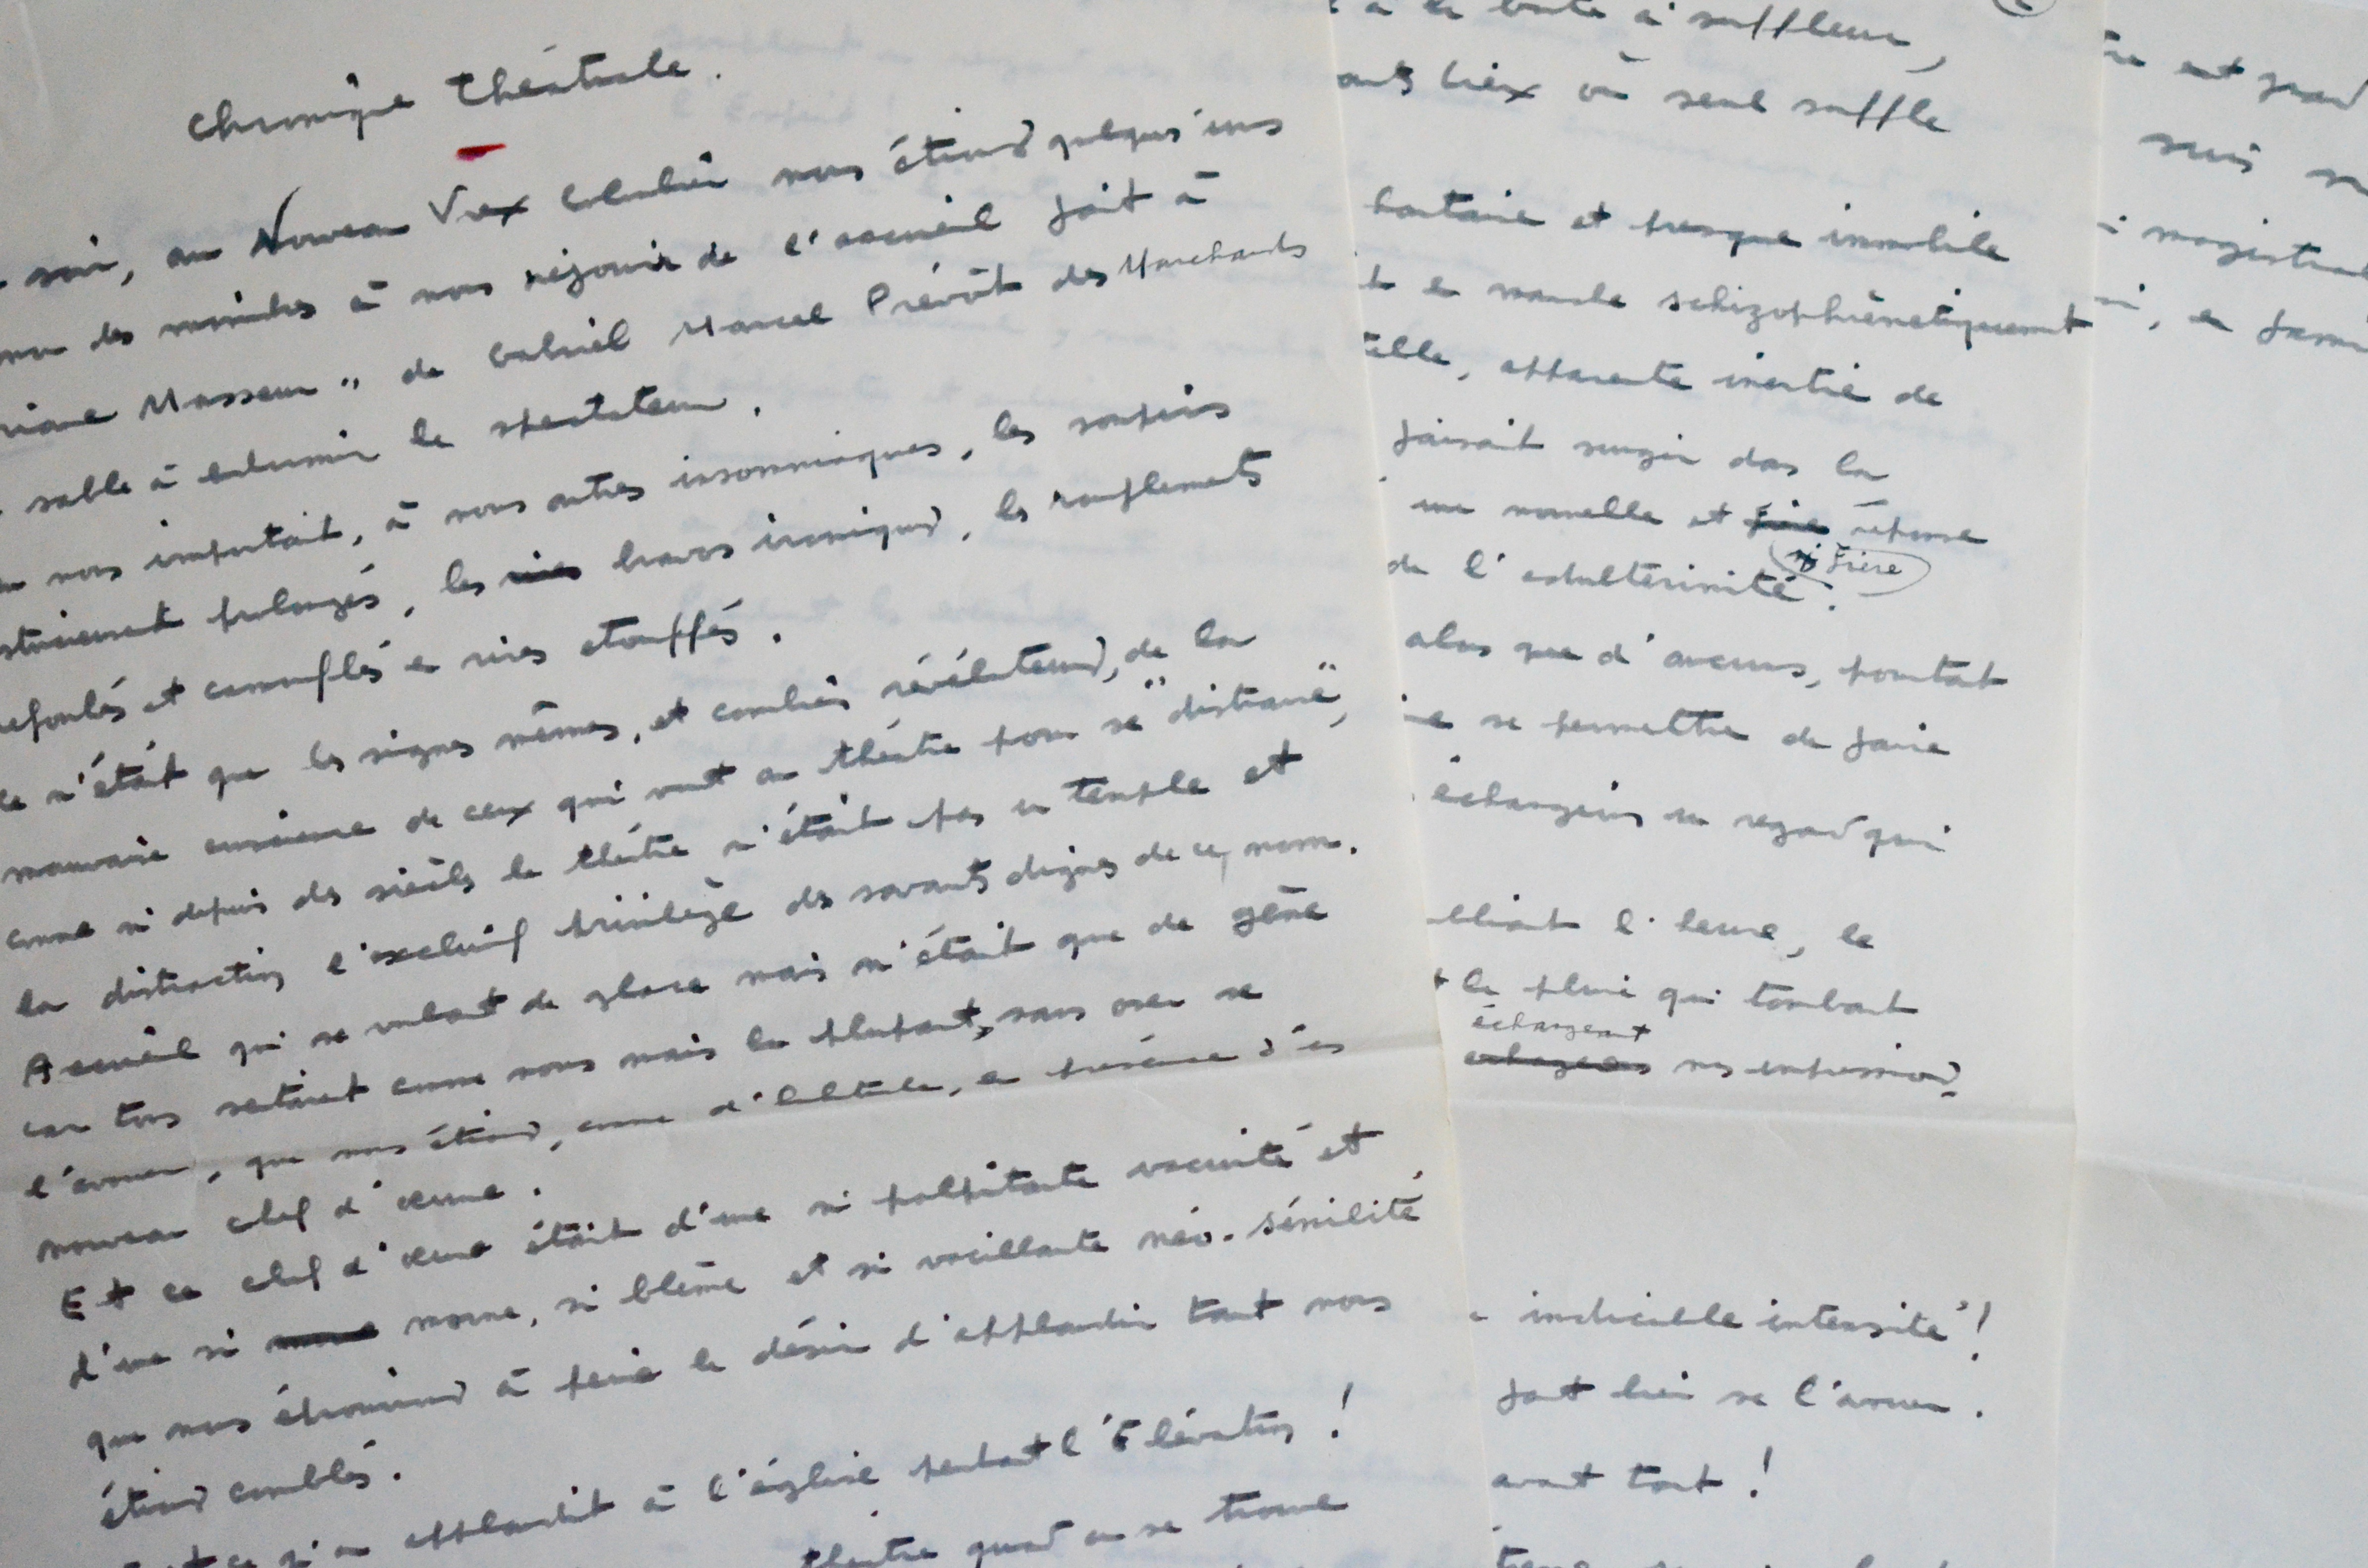 Chronique théâtrale.
soir, au Nouveau Vieux Colombier nous étions quelques'uns
des moindres à nous réjouir de l'accueil fait à
Masseur" de Gabriel Marcel Prévôt des Marchands
sable à endormir le spectateur.
nous importait, à nous autres insomniaques, les soupirs
prolongés, les bravos ironiques, les ronflements
refoulés et camouflés en rires étouffés.
Ce n'était que les signes mêmes, et combien révélateurs, de la
mauvaise conscience de ceux qui vont au théâtre pour se "distraire",
comme si depuis des siècles le théâtre n'était pas un temple et
la distraction l'exclusif privilège des savants dignes de ce nom.
Accueil qui se voulait de glace mais n'était que de gêne
car tous sentaient comme nous mais la plupart, sans oser se
l'avouer, que nous étions, comme d'habitude, en présence d'un
nouveau chef d'œuvre.
Et ce chef d'œuvre était d'une si palpitante vacuité et
d'une si morne, si blême et si vacillante néo-sénilité
que nous éprouvions à peine le désir d'applaudir tant nous
étions comblés.
applaudit à l'église pendant l'Elévation !
théâtre quand on se trouve
à la boite à souffleur,
lieux où seul souffle
et presque immobile
schizophrénétiquement
apparente inertie de
faisait surgir dans la
une nouvelle et réponse
frère
de l'adultérinité.
alors que d'aucuns, pourtant
se permettre de faire
échangeions un regard qui
l'heure, le
la pluie qui tombait
échangeant
nos impressions
indicible intensité !
faut bien se l'avouer.
avant tout !
est grand
suis
magistral